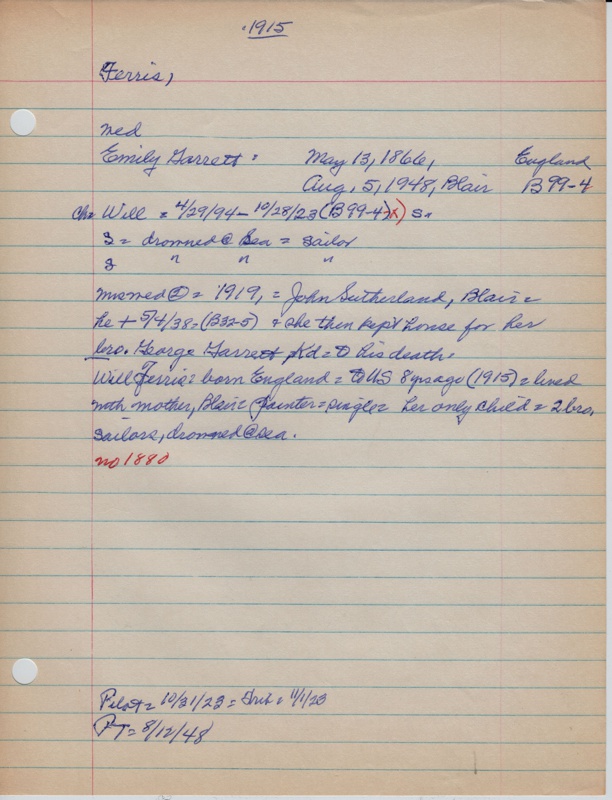 1915
Ferris,
med
Emily Garrett = May 13, 1866, England
Aug. 5, 1948, Blair B99-4
Ch = Will = 4/29/94 - 10/28/23 (B99-4) (x) S =
S = drowned @ Sea = sailor
S " " "
married ② = 1919, = John Sutherland, Blair =
he + 5/4/38 = (B32-5) + she then kept house for her
bro. George Garrett = to his death.
Will Ferris = born England = to US 8 yrs ago (1915) = lived
with mother, Blair = Painter = single = her only child = 2 bro.
sailors, drowned @ sea.
no 1880
Pilot = 10/31/23 = Ent = 11/1/23
PT = 8/12/48